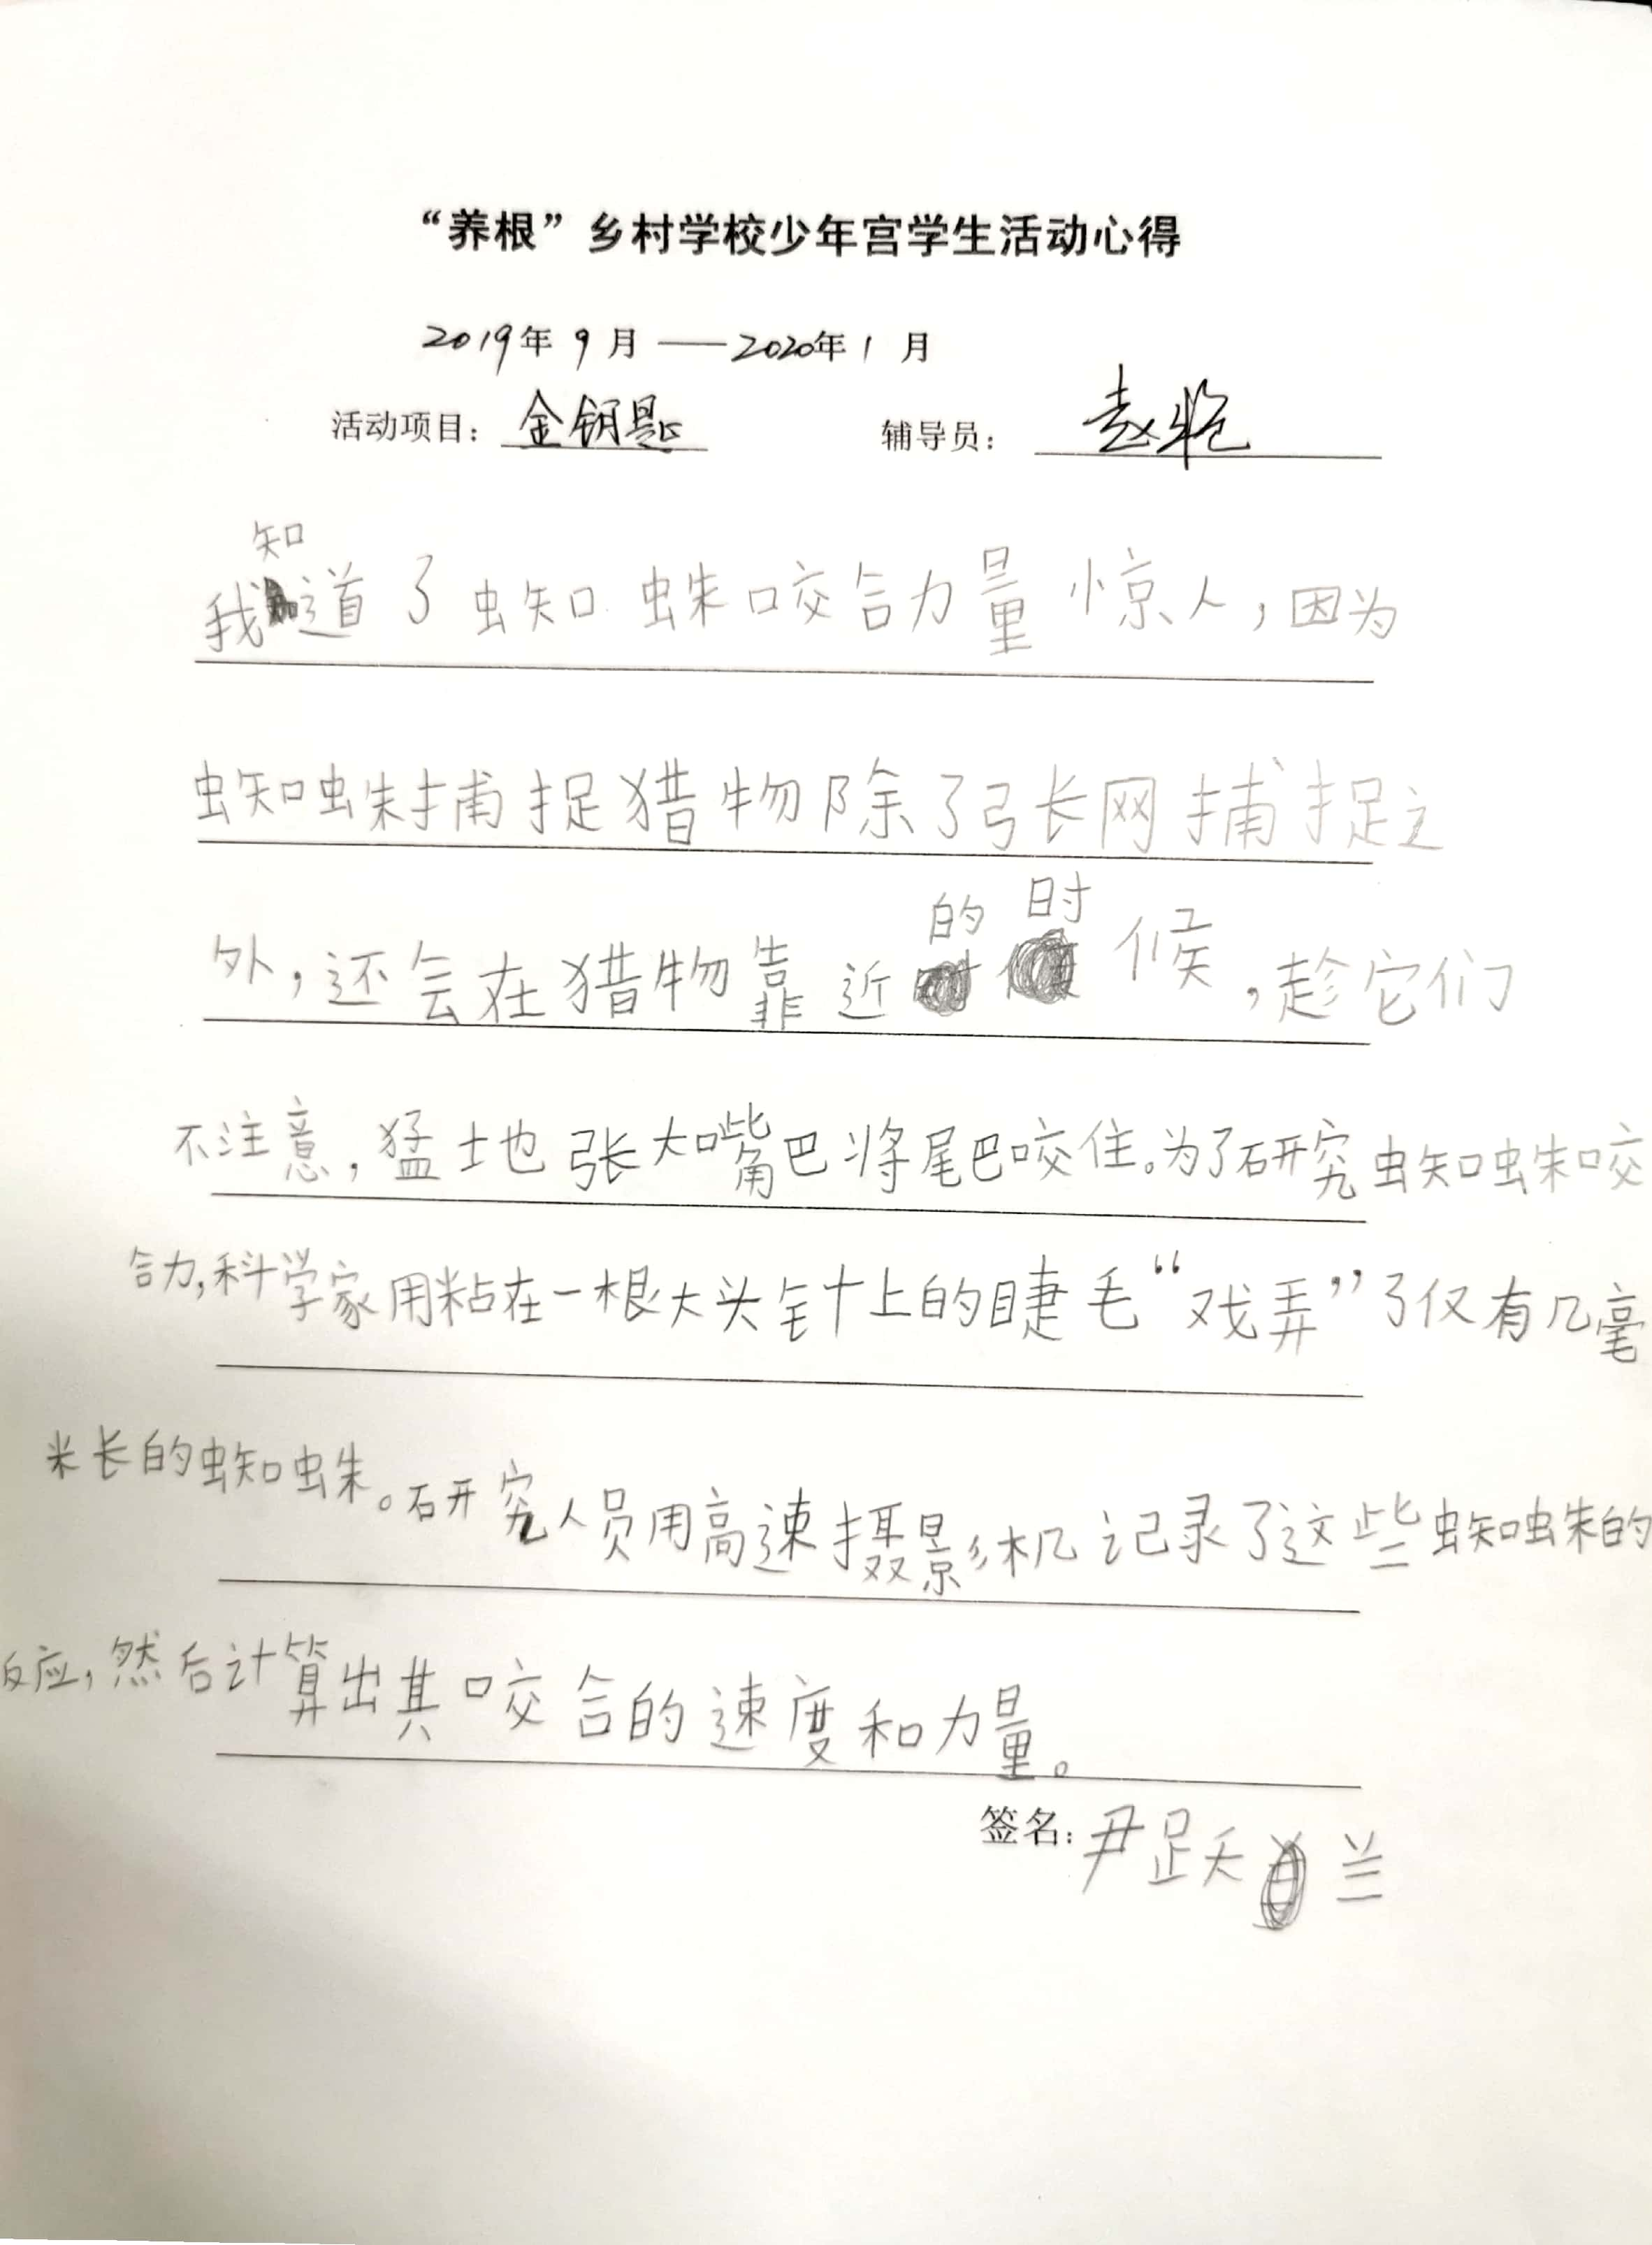 “养根”乡村学校少年宫学生活动心得
2019年9月——2020年1月
活动项目：金钥匙 辅导员：赵艳
我知道了蜘蛛咬合力量惊人，因为
蜘蛛捕捉猎物除了弓长网捕捉之
外，还会在猎物靠近的时候，趁它们
不注意，猛地张大嘴巴将尾巴咬住。为了研究蜘蛛咬
合力，科学家用粘在一根大头针上的睫毛“戏弄”了仅有几毫
米长的蜘蛛。研究人员用高速摄影机记录了这些蜘蛛的
反应，然后计算出其咬合的速度和力量。
签名：尹跃兰